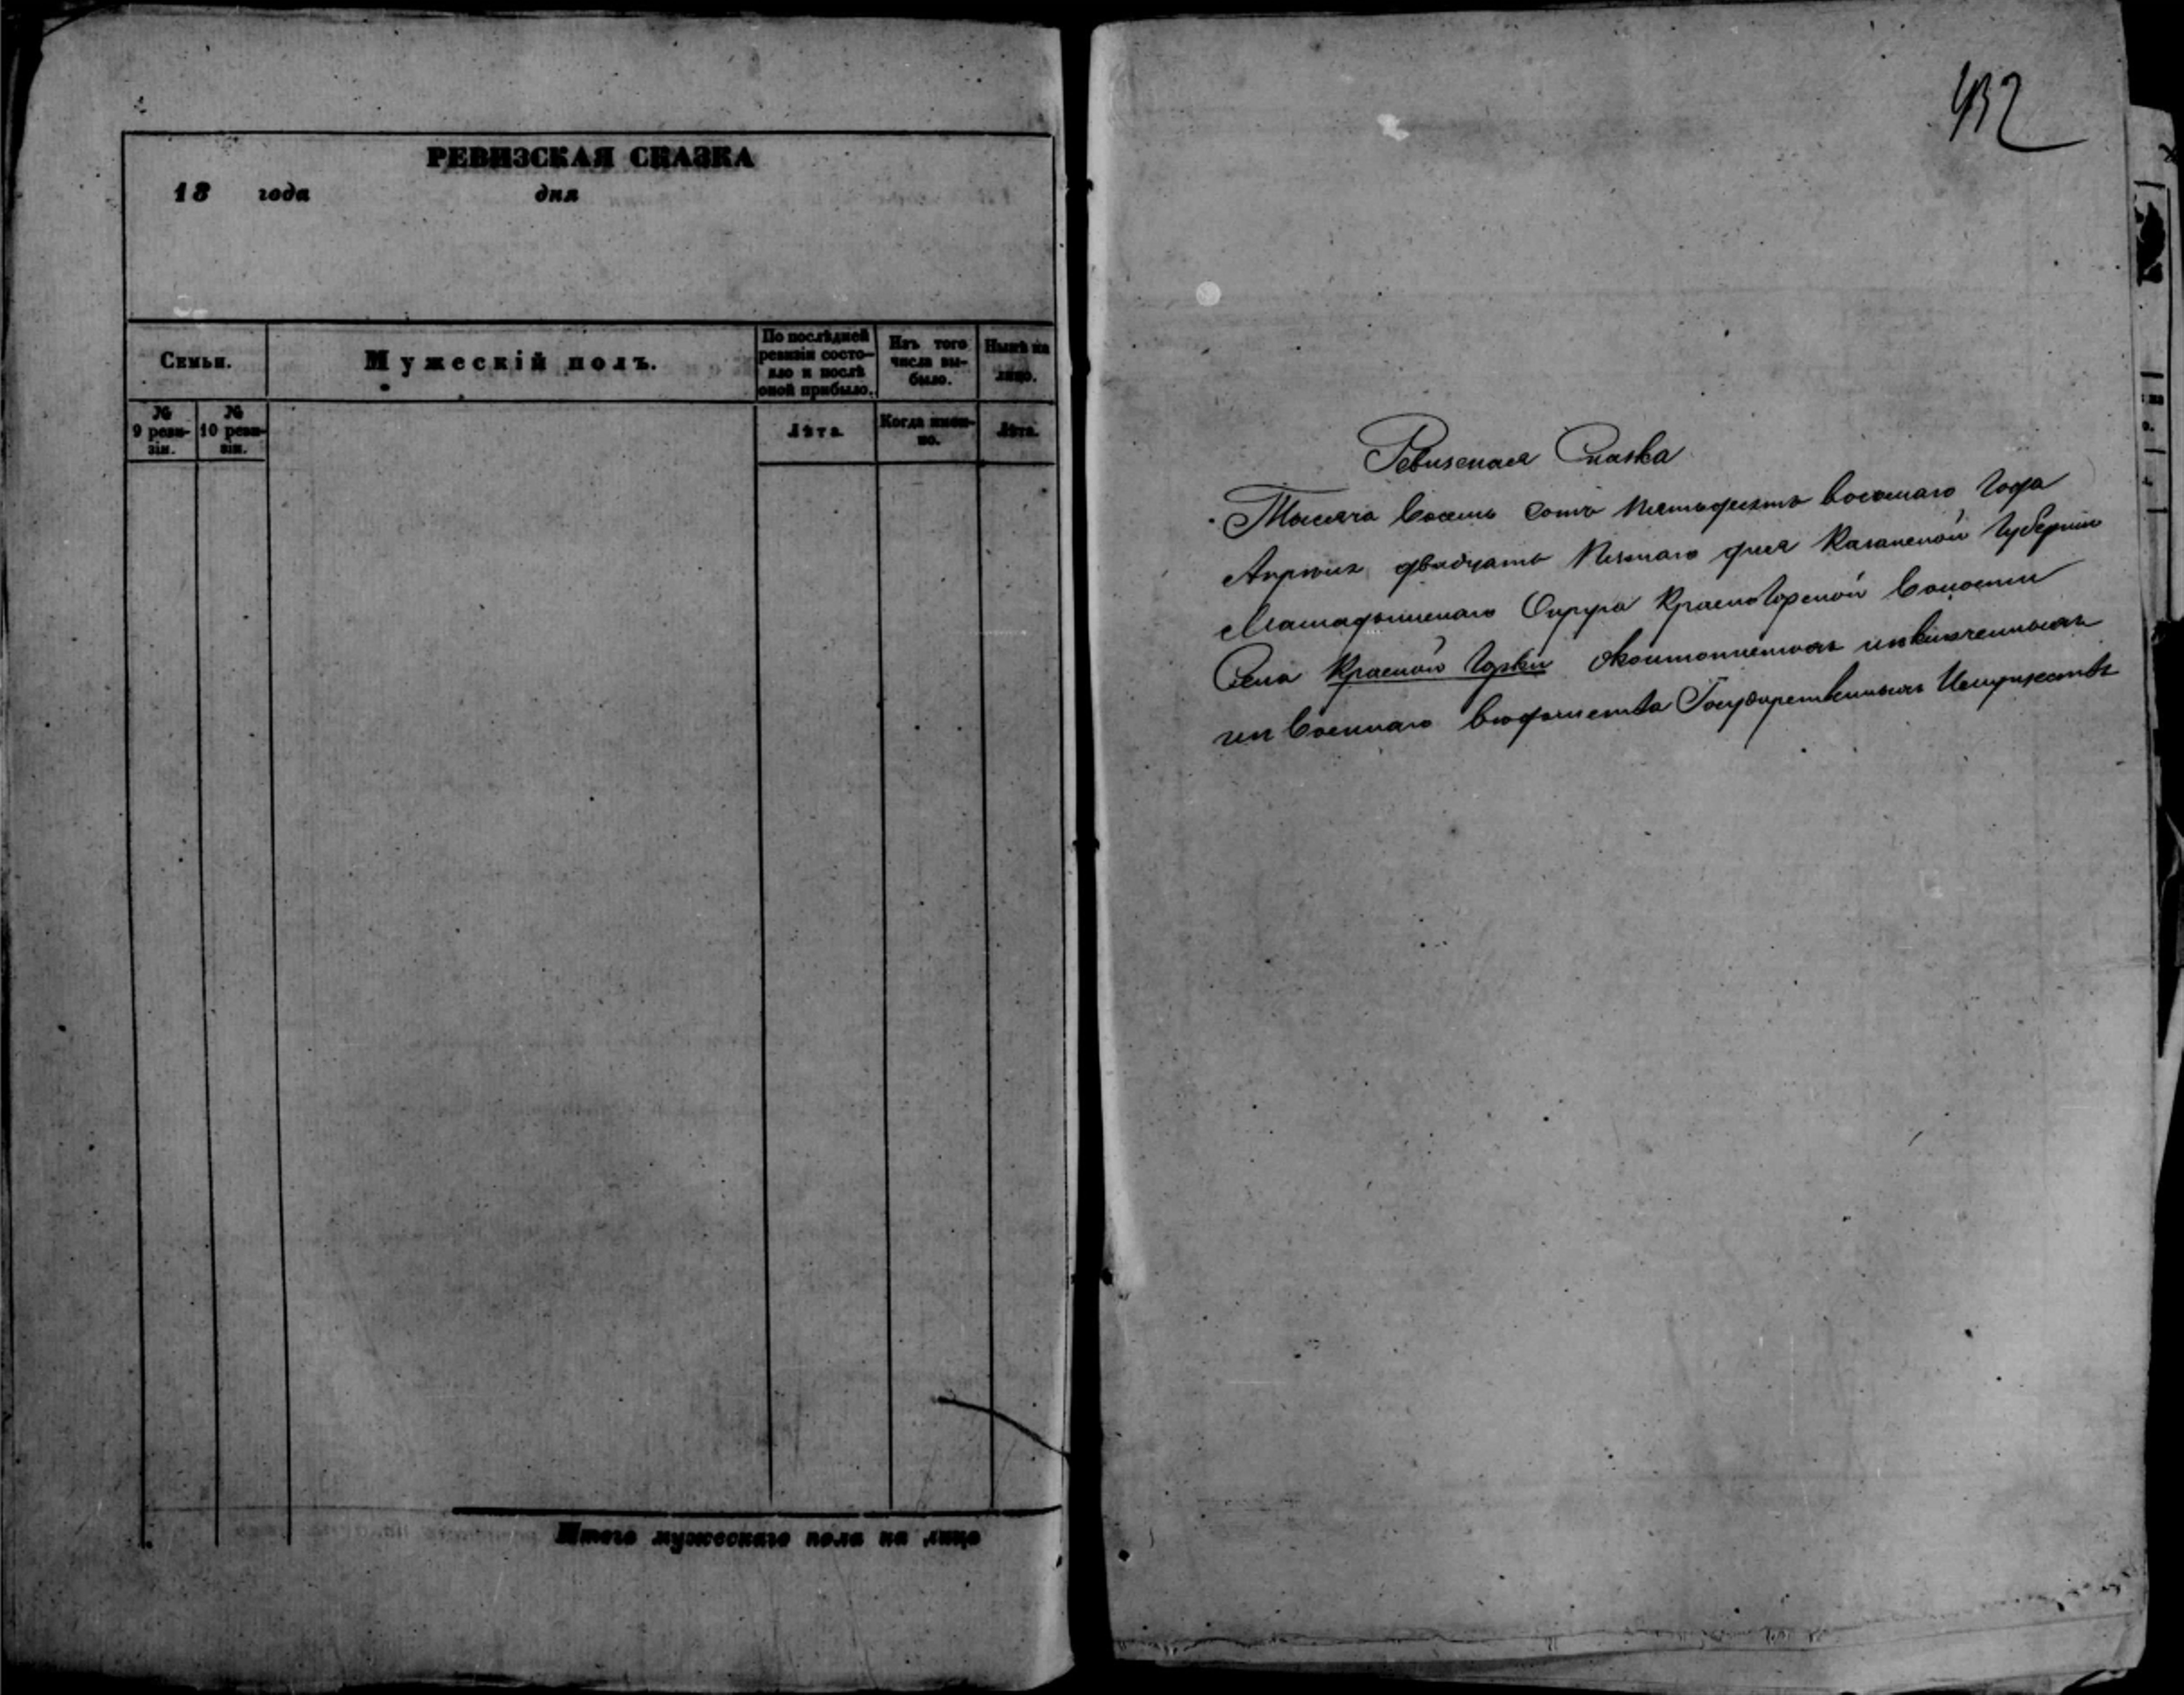 РЕВИЗСКАЯ СКАЗКА
18 года дня
Семьи.
Мужескій полъ.
По послѣдней ревизіи состо-
яло и послѣ
оной прибыло.
Изъ того
числа вы-
было.
Нынѣ на
лицо.
№
9 реви-
зіи.
№
10 реви-
зіи.
Лѣта.
Когда имен-
но.
Лѣта.
Итого мужескаго пола на лицо
432
Ревизская Сказка
Тысяча восемь сотъ пятьдесятъ восьмаго Года
Апрѣля двадцать пятаго дня Казанской Губерніи
Мамадышскаго Округа Красногорской Волости
Села Красной Горки
Военнаго вѣдомства Государственныхъ Имуществъ